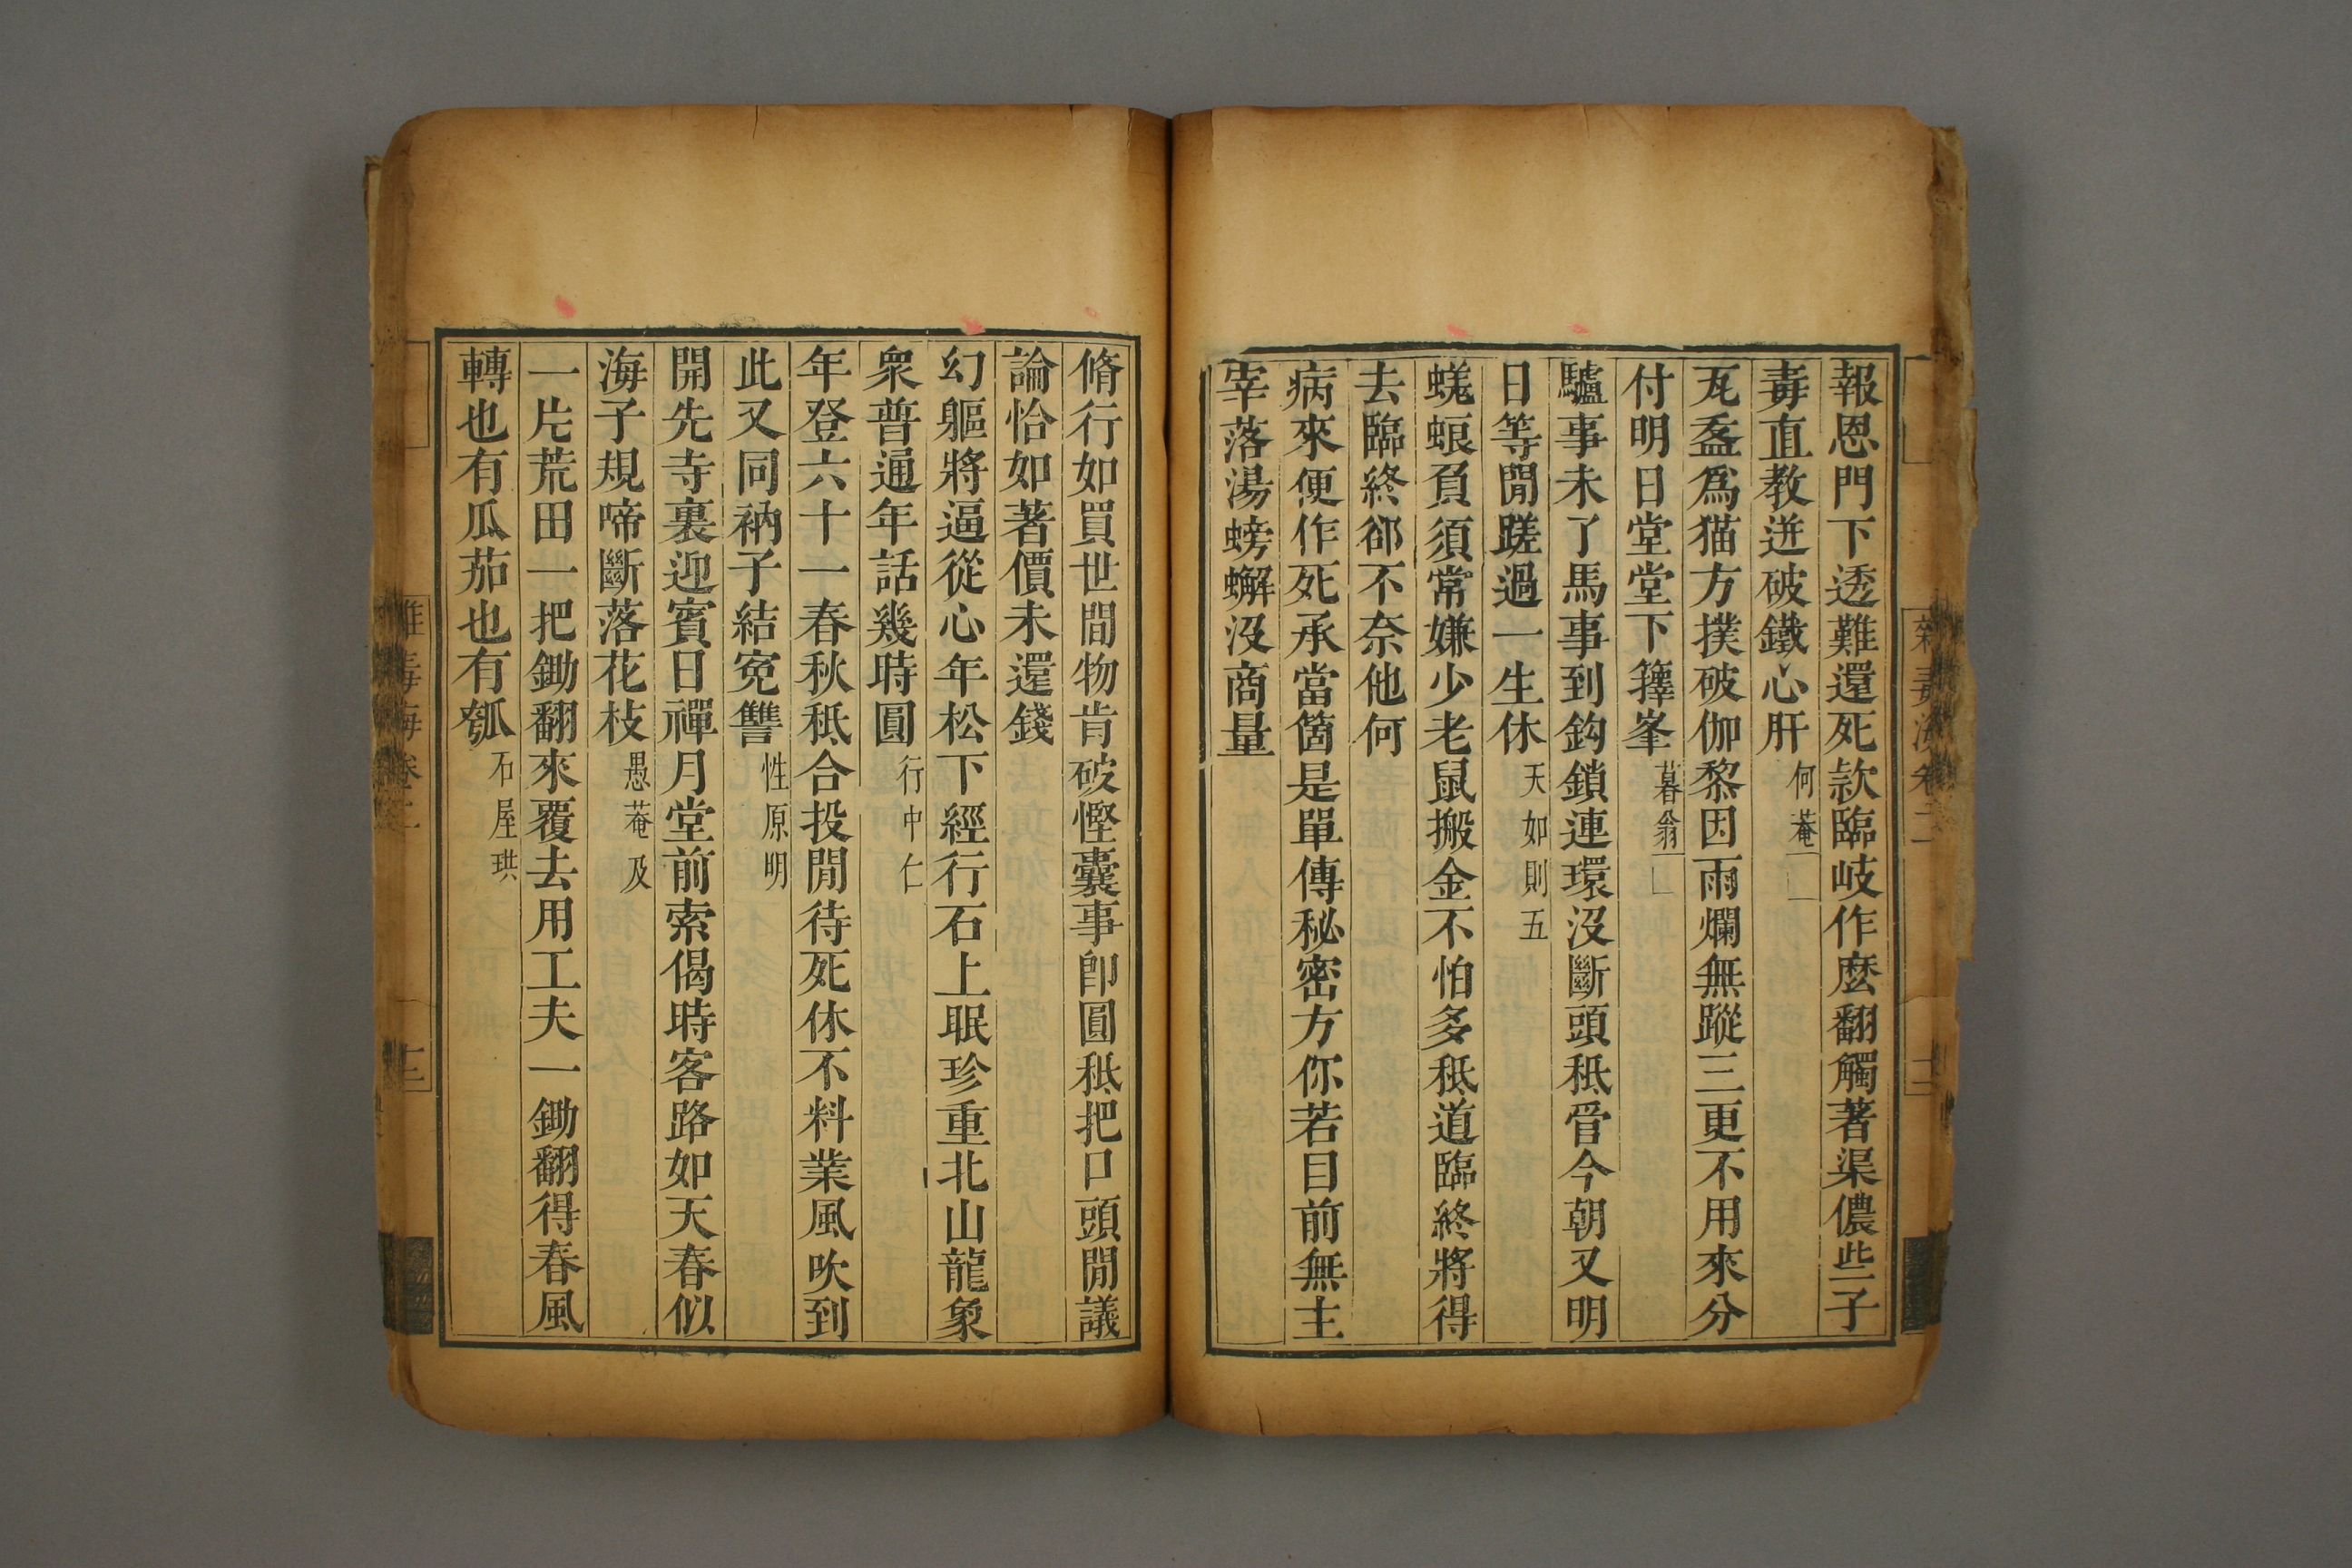 報恩門下透難還死欵臨岐作麽翻觸著渠儂些子
毒直教迸破鐵心肝何菴
瓦盋爲猫方撲破伽黎因雨爛無蹤三更不用來分
付明日堂堂下籜峯暮翁
驢事未了馬事到鈎鎖連環沒斷頭秪管今朝又明
日等閒蹉過一生休天如則五
蜣蜋負須常嫌少老鼠搬金不怕多秪道臨終將得
去臨終郤不奈他何
病來便作死承當箇是單傳秘密方你若目前無主
宰落湯螃蠏沒商量
脩行如買世間物肯破慳囊事卽圓秪把口頭閒議
論恰如著價未還錢
幻軀將逼從心年松下經行石上眠珍重北山龍象
衆普通年話幾時圓行中仁
年登六十一春秋秪合投閒待死休不料業風吹到
此又同衲子結寃讐性原明
開先寺裏迎賓日禪月堂前索偈時客路如天春似
海子規啼斷落花枝愚菴及
一片荒田一把鋤翻來覆去用工夫一鋤翻得春風
轉也有瓜茄也有瓠石屋珙